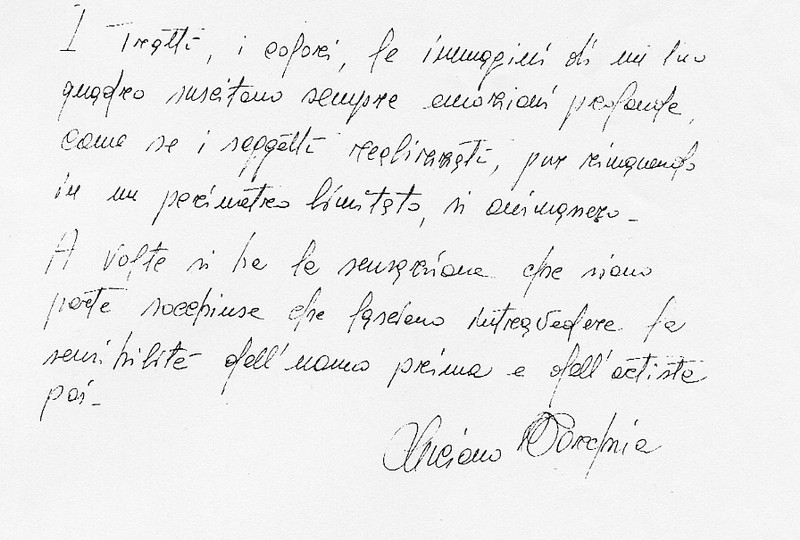 I tratti, i colori, le immagini di un tuo
quadro suscitano sempre emozioni profonde,
come se i soggetti realizzati, pur rimanendo
in un perimetro limitato, si animassero -
A volte si ha la sensazione che siano
porte socchiuse che lasciano intravedere la
sensibilità dell'uomo prima e dell'artista
poi -
Luciano